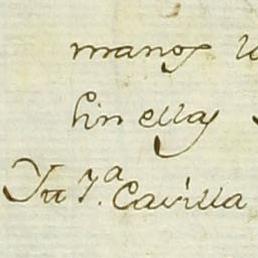 manos
sin ellas
Tu J.ª Cavilla